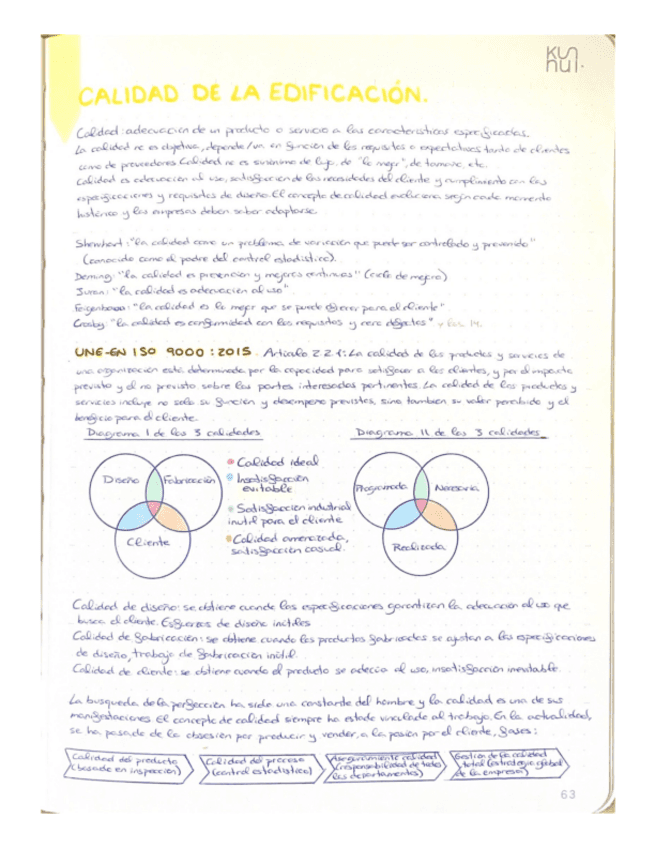 KUN
NUI.
CALIDAD DE LA EDIFICACIÓN.
Calidad: adecuación de un producto o servicio a las características especificadas.
La calidad no es objetiva, depende/un en función de los requisitos o expectativas tanto de clientes
como de proveedores. Calidad no es sinónimo de lujo, de "lo mejor", de tamaño, etc.
Calidad es adecuación al uso, satisfacción de las necesidades del cliente y cumplimiento con las
especificaciones y requisitos de diseño. El concepto de calidad evoluciona según cada momento
histórico y las empresas deben saber adaptarse.
Shewhart: "la calidad como un problema de variación que puede ser controlado y prevenido"
(conocido como el padre del control estadístico).
Deming: "la calidad es prevención y mejora continua" (ciclo de mejora)
Juran: "la calidad es adecuación al uso".
Feigenbaum: "la calidad es lo mejor que se puede ofrecer para el cliente"
Crosby: "la calidad es conformidad con los requisitos y cero defectos" y los 14.
UNE-EN ISO 9000:2015. Artículo 2.2.1: La calidad de los productos y servicios de
una organización está determinada por la capacidad para satisfacer a los clientes, y por el impacto
previsto y el no previsto sobre las partes interesadas pertinentes. La calidad de los productos y
servicios incluye no solo su función y desempeño previstos, sino también su valor percibido y el
beneficio para el cliente.
Diagrama I de las 3 calidades
Diagrama II de las 3 calidades
Diseño
Fabricación
Cliente
Calidad ideal
Insatisfacción
evitable
Satisfacción industrial
inútil para el cliente
Calidad amenazada,
satisfacción casual.
Programada
Necesaria
Realizada
Calidad de diseño: se obtiene cuando las especificaciones garantizan la adecuación al uso que
busca el cliente. Esfuerzos de diseño inútiles
Calidad de fabricación: se obtiene cuando los productos fabricados se ajustan a las especificaciones
de diseño, trabajo de fabricación inútil.
Calidad de cliente: se obtiene cuando el producto se adecúa al uso, insatisfacción inevitable.
La búsqueda de la perfección ha sido una constante del hombre y la calidad es una de sus
manifestaciones. El concepto de calidad siempre ha estado vinculado al trabajo. En la actualidad,
se ha pasado de la obsesión por producir y vender, a la pasión por el cliente, fases:
Calidad del producto
(basado en inspección)
Calidad del proceso
(control estadístico)
Aseguramiento calidad
(responsabilidad de todos
los departamentos)
Gestión de la calidad
total (estrategia global
de la empresa)
63